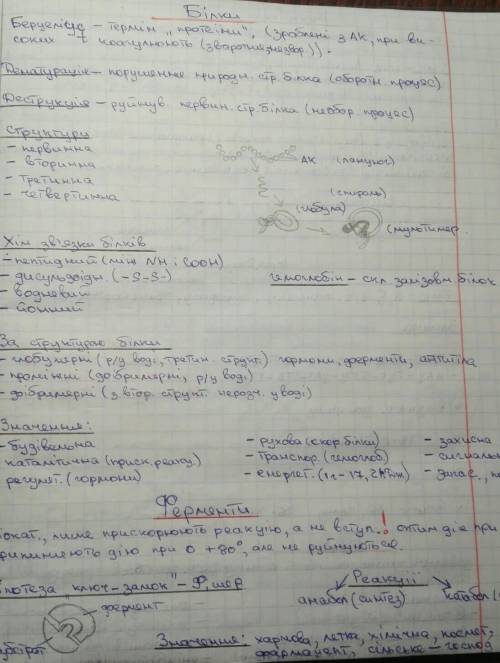 Білки
Берцеліус – термін "протеїни". (зроблені з АК, при ви-
соких t коагулюють (зворотнє/незвор)).
Денатурація – порушення природн. стр. білка (оборотн. процес)
Деструкція – руйнув. первин. стр. білка (необор. процес)
Структури
- первинна
- вторинна
- третинна
- четвертинна
АК (ланцюг)
(спіраль)
(глобула)
(мультимер
Хім зв'язки білків
- пептидний (між NH і COOH)
- дисульфідн. (-S-S-)
- водневий
- йонний
гемоглобін – скл. залізовм білок
За структурою білки
- глобулярні (р/у воді, третин. структ.) гормони, ферменти, антитіла
- проміжні (фібрилярні, р/у воді)
- фібрилярні (з втор. структ. нерозч. у воді)
Значення:
- будівельна
- каталітична (приск. реакц.)
регулят. (гормони)
- рухова (скор. білки)
- транспор. (гемоглоб.)
- енергет. (1г – 17,2 кДж)
- захисна
- сигнальн
- запас.
Ферменти
іокат., лише прискорюють реакцію, а не вступ.! оптим діє при
рипиняють дію при 0 +80°, але не руйнуються.
іпотеза "ключ-замок" – Фішер
Реакції
анабол (синтез)
катабол
фермент
субстрат
Значення: харчова, легка, хімічна, космет.
фармацевт, сільське-господ